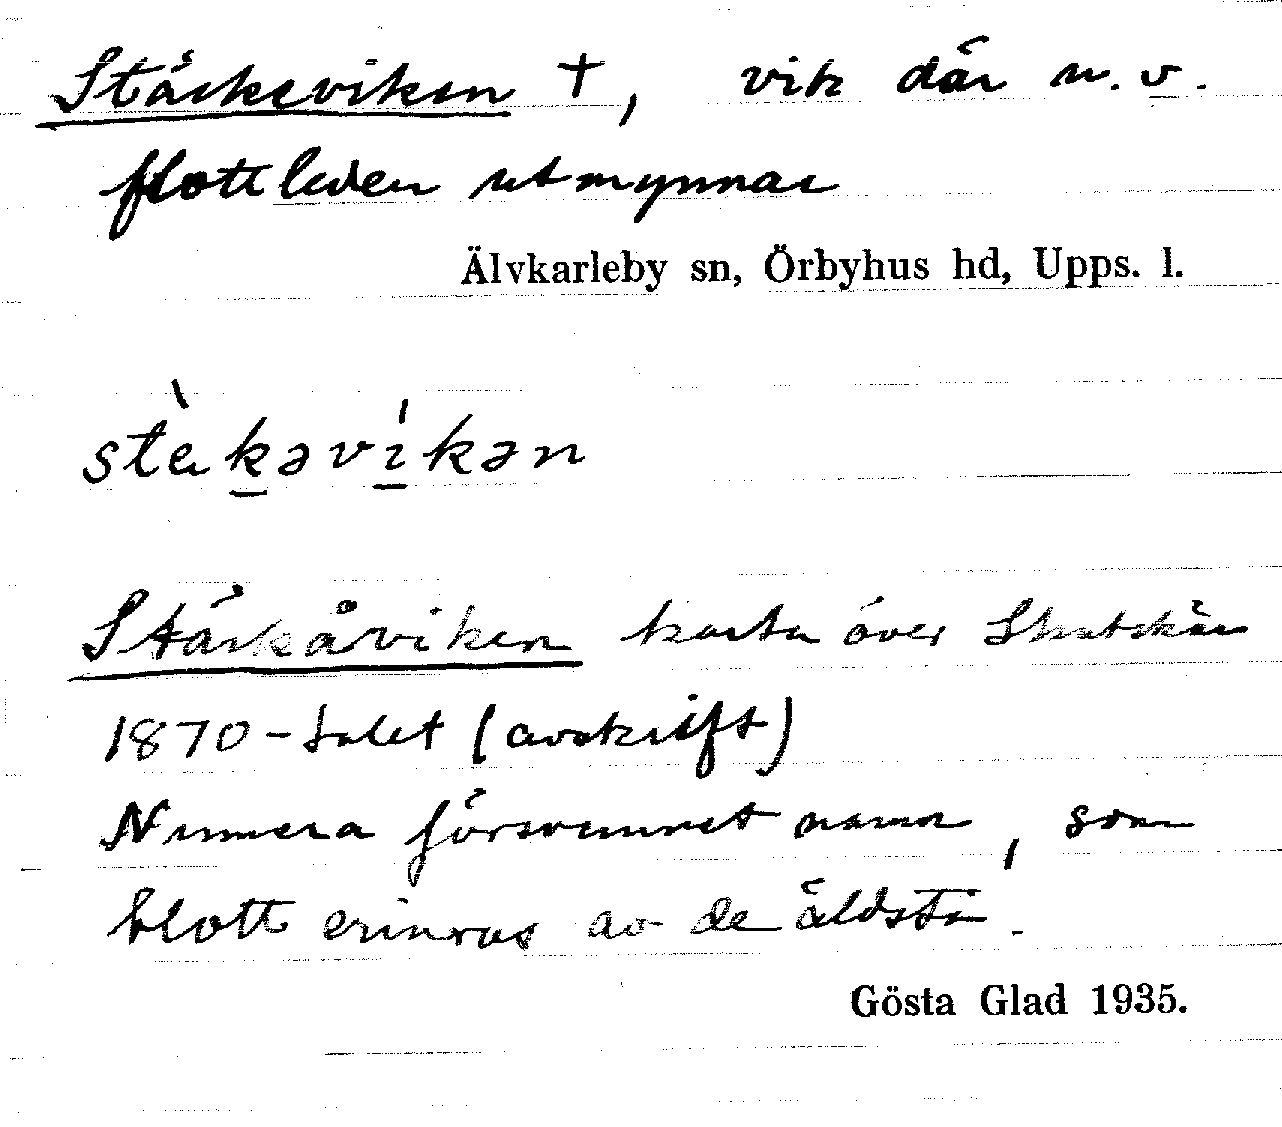 Stäckeviken †, vik där n. v.
flottleden utmynnar
Älvkarleby sn, Örbyhus hd, Upps. l.
stὲkəvìkən
Stärkåviken karta över Skutskär
1870-talet (avskrift)
Numera försvunnet namn, som
blott erinras av de äldsta.
Gösta Glad 1935.